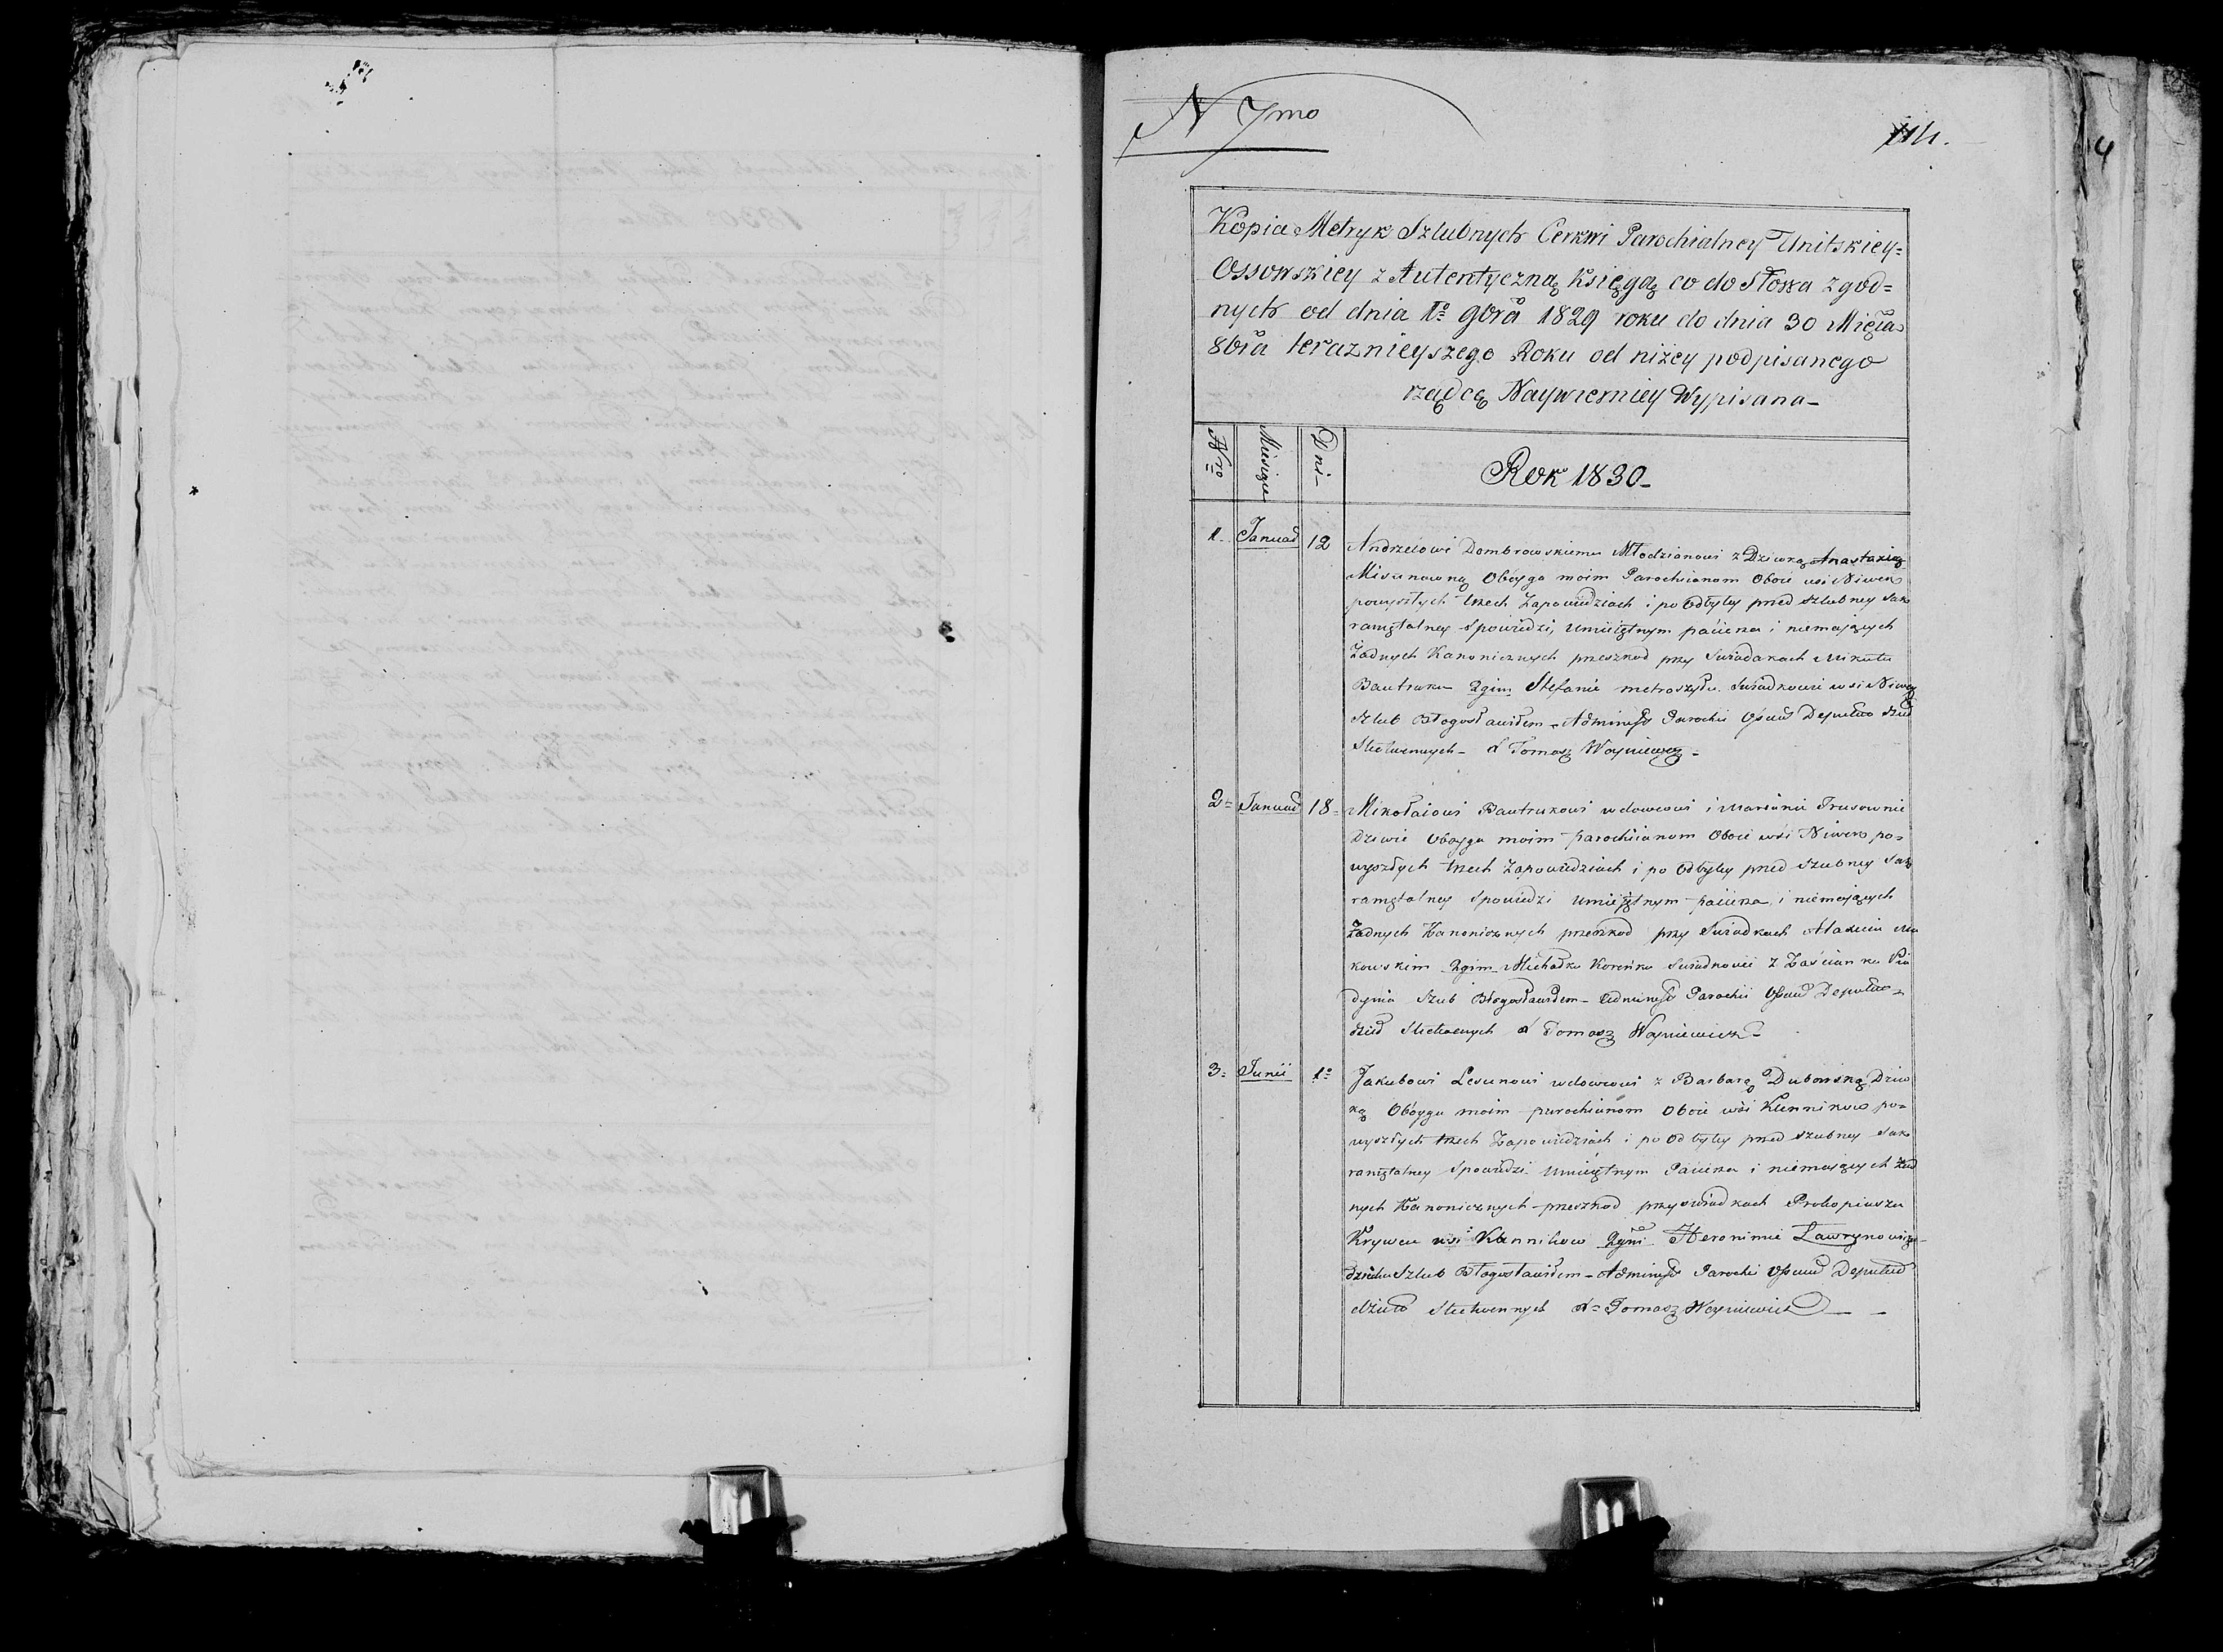 N 7mo
114.
4
Kopia Metryk Szlubnych Cerkwi Parochialney Unitskiey-
Ossowskiey z Autentyczną Księgą co do Słowa zgod=
nych od dnia 1o 9bra 1829 roku do dnia 30 Mięca
8bra teraznieyszego Roku od niżey podpisanego
rządcę Naywierniey Wypisana_
Nro Miesiąc Dni_
Rok 1830_
1. Januar 12 Andrzeiowi Dombrowskiemu Młodzianowi z Dziwką Anastazią
Misunowną Oboyga moim Parochianom Oboie wsi Niwek
powyszłych trzech Zapowiedziach i po Odbytey przed szlubney Sak
ramętalney Spowiedzi, Umiiętnym paćierza i niemaiących
Żadnych Kanonicznych przeszkod przy Swiadakach Mikołu
Bautruku 2gim Stefanie swiadkowie wsi Niwek
Szlub Błogosławiłem_ Administ Parochii Ossow Deputat
X Tomasz Woyniewicz_
2= Januar 18= Mikołaiowi Bautrukowi wdowcowi i Mariannie Trusownie
Dziwie Oboyga moim parochianom Oboie wsi Niwek po=
wyszłych trzech Zapowiedziach i po Odbytey przed szubney Sak
ramętalney Spowiedzi Umieiętnym paćierza i niemaiących
Żadnych Kanonicznych przeszkod przy Swiadkach
kowskim 2gim Michałku swiadkowie z Zaścianku
Szub Błogosławiłem_ Administ Parochii Ossow Deputat
X Tomasz Woyniewicz_
3= Junii 1o Jakubowi Lesunowi wdowcowi z Barbarą Dubowską Dziw
ką Oboyga moim parochianom Oboie wsi Klennikow po=
wyszłych trzech Zapowiedziach i po Odbytey przed szubney Sak
ramętalney Spowiedzi Umieiętnym Paćierza i niemaiących Żad
nych Kanonicznych przeszkod przy swiadkach Prokopiuszu
Krywcu wsi Klennikow 2gim Heronimie
Szlub Błogosławiłem_ Administ Parochii Ossow Deputat
X= Tomasz Woyniewicz